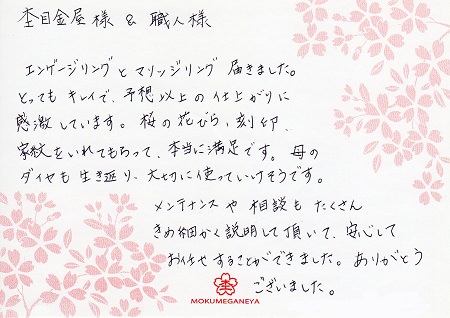 杢目金屋様 & 職人様
エンゲージリングとマリッジリング 届きました。
とっても キレイで、予想以上の仕上がりに
感激しています。桜の花びら、刻印、
家紋をいれてもらって、本当に満足です。母の
ダイヤも生き返り、大切に使っていけそうです。
メンテナンスや 相談も たくさん
きめ細かく説明して頂いて、安心して
お任せすることができました。ありがとう
ございました。
MOKUMEGANEYA